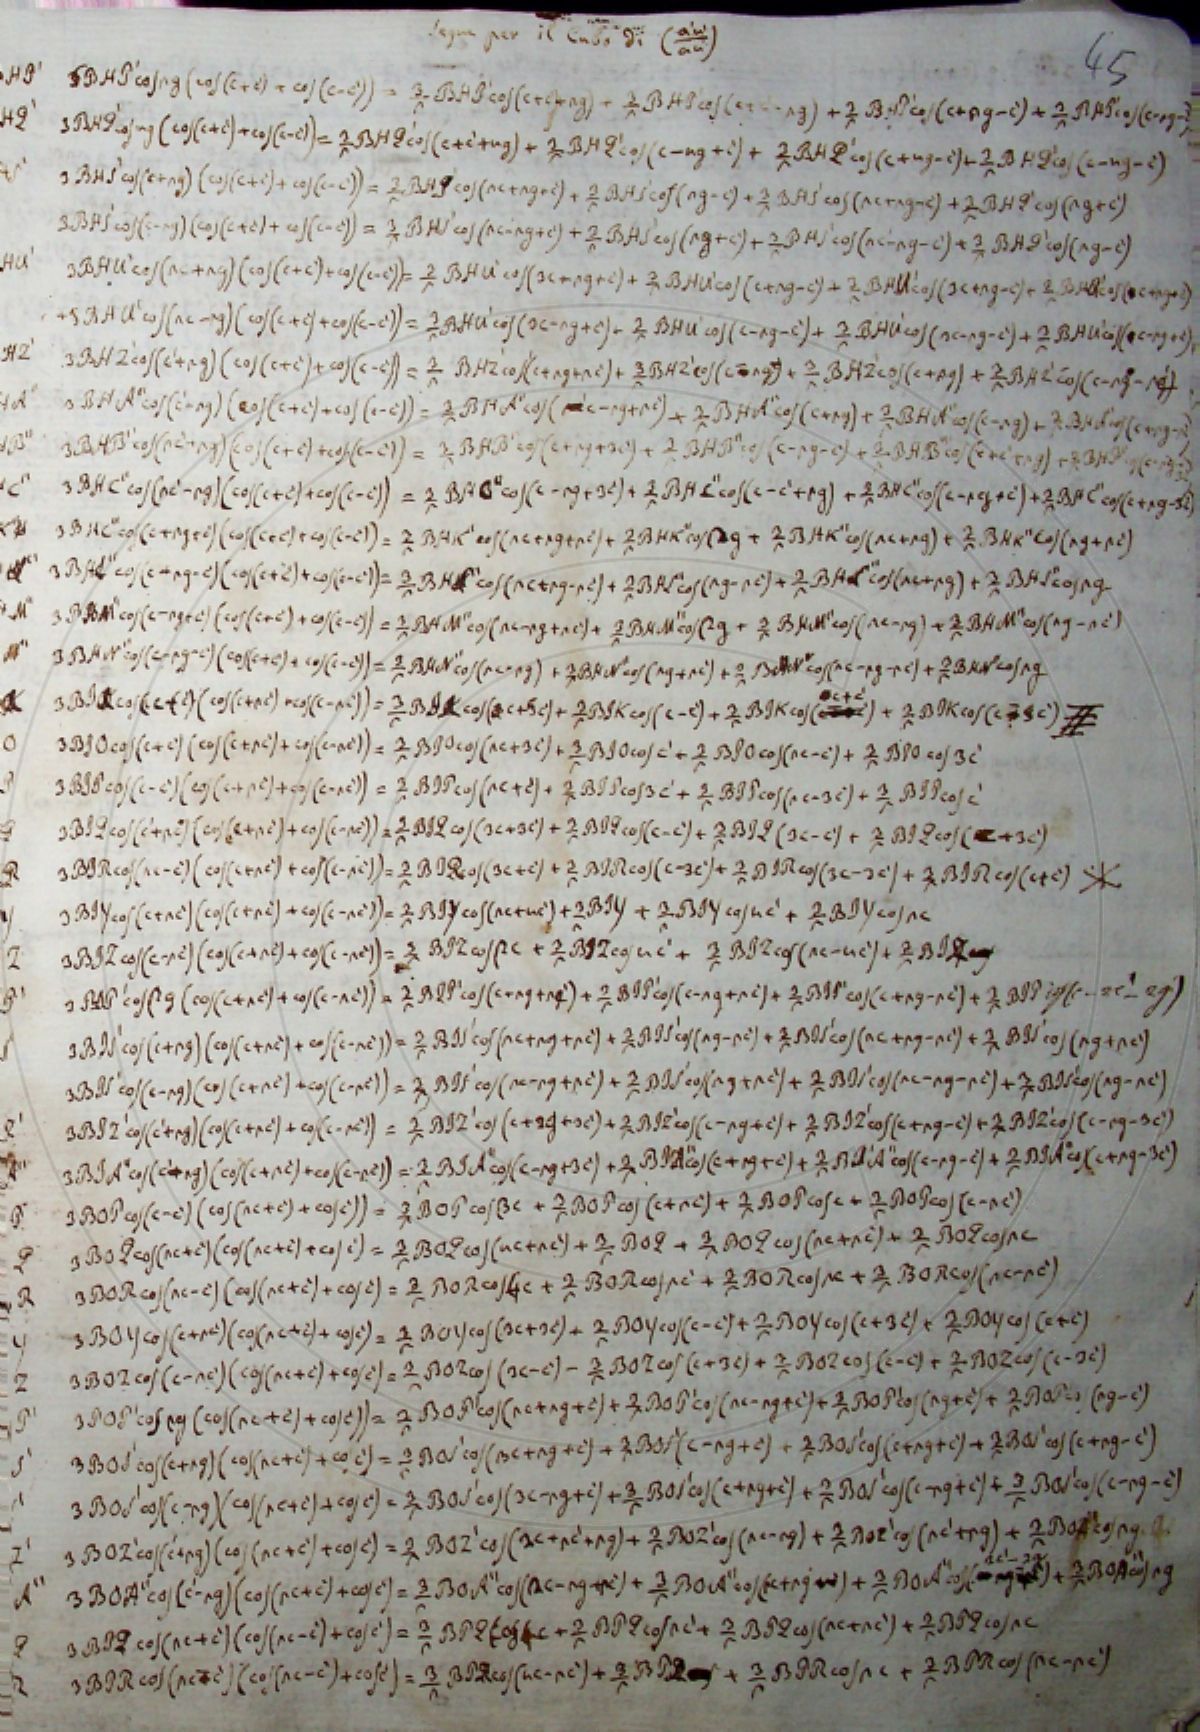 Segue per il Cubo di (a'u'/au)
45
3BHP'cos2g(cos(c+c')+cos(c-c')) = 3/2 BHP'cos(c+c'+2g) + 3/2 BHP'cos(c+c'-2g) + 3/2 BHP'cos(c+2g-c') + 3/2 BHP'cos(c-2g-
3BHQ'cos4g(cos(c+c')+cos(c-c')) = 3/2 BHQ'cos(c+c'+4g) + 3/2 BHQ'cos(c-4g+c') + 3/2 BHQ'cos(c+4g-c') + 3/2 BHQ'cos(c-4g-c')
3BHS'cos(c+2g)(cos(c+c')+cos(c-c')) = 3/2 BHS'cos(2c+2g+c') + 3/2 BHS'cos(2g-c') + 3/2 BHS'cos(2c+2g-c') + 3/2 BHS'cos(2g+c')
3BHS'cos(c-2g)(cos(c+c')+cos(c-c')) = 3/2 BHS'cos(2c-2g+c') + 3/2 BHS'cos(2g+c') + 3/2 BHS'cos(2c-2g-c') + 3/2 BHS'cos(2g-c')
3BHU'cos(2c+2g)(cos(c+c')+cos(c-c')) = 3/2 BHU'cos(3c+2g+c') + 3/2 BHU'cos(c+2g-c') + 3/2 BHU'cos(3c+2g-c') + 3/2 BHU'cos(c+2g+c')
+3BHU'cos(2c-2g)(cos(c+c')+cos(c-c')) = 3/2 BHU'cos(3c-2g+c') + 3/2 BHU'cos(c-2g-c') + 3/2 BHU'cos(3c-2g-c') + 3/2 BHU'cos(c-2g+c')
3BHZ'cos(c'+2g)(cos(c+c')+cos(c-c')) = 3/2 BHZ'cos(c+2g+2c') + 3/2 BHZ'cos(c-2g) + 3/2 BHZ'cos(c+2g) + 3/2 BHZ'cos(c-2g-2c')
3BHA''cos(c'-2g)(cos(c+c')+cos(c-c')) = 3/2 BHA''cos(c-2g+2c') + 3/2 BHA''cos(c+2g) + 3/2 BHA''cos(c-2g) + 3/2 BHA''cos(c+2g-
3BHB''cos(2c'+2g)(cos(c+c')+cos(c-c')) = 3/2 BHB''cos(c+2g+3c') + 3/2 BHB''cos(c-2g-c') + 3/2 BHB''cos(c+c'+2g) + 3/2 BHB''cos(c-2g-
3BHC''cos(2c'-2g)(cos(c+c')+cos(c-c')) = 3/2 BHC''cos(c-2g+3c') + 3/2 BHC''cos(c-c'+2g) + 3/2 BHC''cos(c-2g+c') + 3/2 BHC''cos(c+2g-3c')
3BHK''cos(c+2g+c')(cos(c+c')+cos(c-c')) = 3/2 BHK''cos(2c+2g+2c') + 3/2 BHK''cos2g + 3/2 BHK''cos(2c+2g) + 3/2 BHK''cos(2g+2c')
3BHL''cos(c+2g-c')(cos(c+c')+cos(c-c')) = 3/2 BHL''cos(2c+2g-2c') + 3/2 BHL''cos(2g-2c') + 3/2 BHL''cos(2c+2g) + 3/2 BHL''cos2g
3BHM''cos(c-2g+c')(cos(c+c')+cos(c-c')) = 3/2 BHM''cos(2c-2g+2c') + 3/2 BHM''cos2g + 3/2 BHM''cos(2c-2g) + 3/2 BHM''cos(2g-2c')
3BHN''cos(c-2g-c')(cos(c+c')+cos(c-c')) = 3/2 BHN''cos(2c-2g) + 3/2 BHN''cos(2g+2c') + 3/2 BHN''cos(2c-2g-2c') + 3/2 BHN''cos2g
3BIKcos(c+c')(cos(c+2c')+cos(c-2c')) = 3/2 BIKcos( + 3/2 BIKcos(c-c') + 3/2 BIKcos( ) + 3/2 BIKcos(c-3c')
3BIOcos(c+c')(cos(c+2c')+cos(c-2c')) = 3/2 BIOcos(2c+3c') + 3/2 BIOcosc' + 3/2 BIOcos(2c-c') + 3/2 BIOcos3c'
3BIPcos(c-c')(cos(c+2c')+cos(c-2c')) = 3/2 BIPcos(2c+c') + 3/2 BIPcos3c' + 3/2 BIPcos(2c-3c') + 3/2 BIPcosc'
3BIQcos(2c+c')(cos(c+2c')+cos(c-2c')) = 3/2 BIQcos(3c+3c') + 3/2 BIQcos(c-c') + 3/2 BIQ(3c-c') + 3/2 BIQcos(c+3c')
3BIRcos(2c-c')(cos(c+2c')+cos(c-2c')) = 3/2 BIRcos(3c+c') + 3/2 BIRcos(c-3c') + 3/2 BIRcos(3c-3c') + 3/2 BIRcos(c+c')
3BIYcos(c+2c')(cos(c+2c')+cos(c-2c')) = 3/2 BIYcos(2c+4c') + 3/2 BIY + 3/2 BIYcos4c' + 3/2 BIYcos2c
3BIZcos(c-2c')(cos(c+2c')+cos(c-2c')) = 3/2 BIZcos2c + 3/2 BIZcos4c' + 3/2 BIZcos(2c-4c') + 3/2 BIZ
3BIP'cos2g(cos(c+2c')+cos(c-2c')) = 3/2 BIP'cos(c+2g+2c') + 3/2 BIP'cos(c-2g+2c') + 3/2 BIP'cos(c+2g-2c') + 3/2 BIP'cos(c-2c'-2g)
3BIS'cos(c+2g)(cos(c+2c')+cos(c-2c')) = 3/2 BIS'cos(2c+2g+2c') + 3/2 BIS'cos(2g-2c') + 3/2 BIS'cos(2c+2g-2c') + 3/2 BIS'cos(2g+2c')
3BIS'cos(c-2g)(cos(c+2c')+cos(c-2c')) = 3/2 BIS'cos(2c-2g+2c') + 3/2 BIS'cos(2g+2c') + 3/2 BIS'cos(2c-2g-2c') + 3/2 BIS'cos(2g-2c')
3BIZ'cos(c'+2g)(cos(c+2c')+cos(c-2c')) = 3/2 BIZ'cos(c+2g+3c') + 3/2 BIZ'cos(c-2g+c') + 3/2 BIZ'cos(c+2g-c') + 3/2 BIZ'cos(c-2g-3c')
3BIA''cos(c'-2g)(cos(c+2c')+cos(c-2c')) = 3/2 BIA''cos(c-2g+3c') + 3/2 BIA''cos(c+2g+c') + 3/2 BIA''cos(c-2g-c') + 3/2 BIA''cos(c+2g-3c')
3BOPcos(c-c')(cos(2c+c')+cosc')) = 3/2 BOPcos3c + 3/2 BOPcos(c+2c') + 3/2 BOPcosc + 3/2 BOPcos(c-2c')
3BOQcos(2c+c')(cos(2c+c')+cosc') = 3/2 BOQcos(4c+2c') + 3/2 BOQ + 3/2 BOQcos(2c+2c') + 3/2 BOQcos2c
3BORcos(2c-c')(cos(2c+c')+cosc') = 3/2 BORcos4c + 3/2 BORcos2c' + 3/2 BORcos2c + 3/2 BORcos(2c-2c')
3BOYcos(c+2c')(cos(2c+c')+cosc') = 3/2 BOYcos(3c+3c') + 3/2 BOYcos(c-c') + 3/2 BOYcos(c+3c') + 3/2 BOYcos(c+c')
3BOZcos(c-2c')(cos(2c+c')+cosc') = 3/2 BOZcos(3c-c') - 3/2 BOZcos(c+3c') + 3/2 BOZcos(c-c') + 3/2 BOZcos(c-3c')
3BOP'cos2g(cos(2c+c')+cosc')) = 3/2 BOP'cos(2c+2g+c') + 3/2 BOP'cos(2c-2g+c') + 3/2 BOP'cos(2g+c') + 3/2 BOP'cos(2g-c')
3BOS'cos(c+2g)(cos(2c+c')+cosc') = 3/2 BOS'cos(3c+2g+c') + 3/2 BOS'(c-2g+c') + 3/2 BOS'cos(c+2g+c') + 3/2 BOS'cos(c+2g-c')
3BOS'cos(c-2g)(cos(2c+c')+cosc') = 3/2 BOS'cos(3c-2g+c') + 3/2 BOS'cos(c+2g+c') + 3/2 BOS'cos(c-2g+c') + 3/2 BOS'cos(c-2g-c')
3BOZ'cos(c'+2g)(cos(2c+c')+cosc') = 3/2 BOZ'cos(2c+2c'+2g) + 3/2 BOZ'cos(2c-2g) + 3/2 BOZ'cos(2c'+2g) + 3/2 BOZ'cos2g
3BOA''cos(c'-2g)(cos(2c+c')+cosc') = 3/2 BOA''cos(2c-2g+2c') + 3/2 BOA''cos(2c+2g) + 3/2 BOA''cos(2c'-2g) + 3/2 BOA''cos2g
3BPQcos(2c+c')(cos(2c-c')+cosc') = 3/2 BPQcos4c + 3/2 BPQcos2c' + 3/2 BPQcos(2c+2c') + 3/2 BPQcos2c
3BPRcos(2c-c')(cos(2c-c')+cosc') = 3/2 BPRcos(4c-2c') + 3/2 BPR + 3/2 BPRcos2c + 3/2 BPRcos(2c-2c')